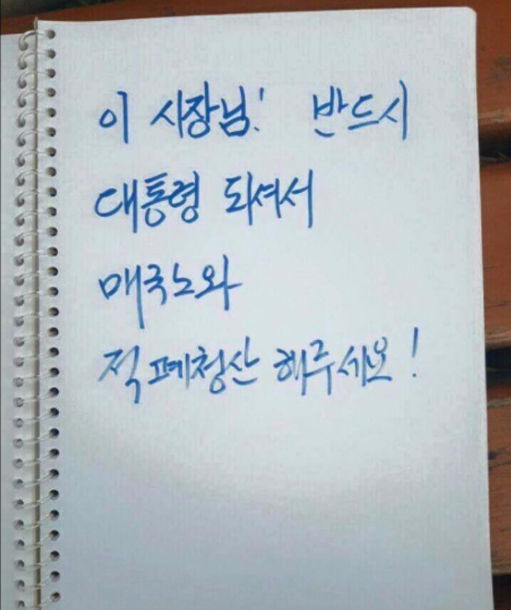 이 시장님! 반드시
대통령 되셔서
매국노와
적폐청산 해주세요!